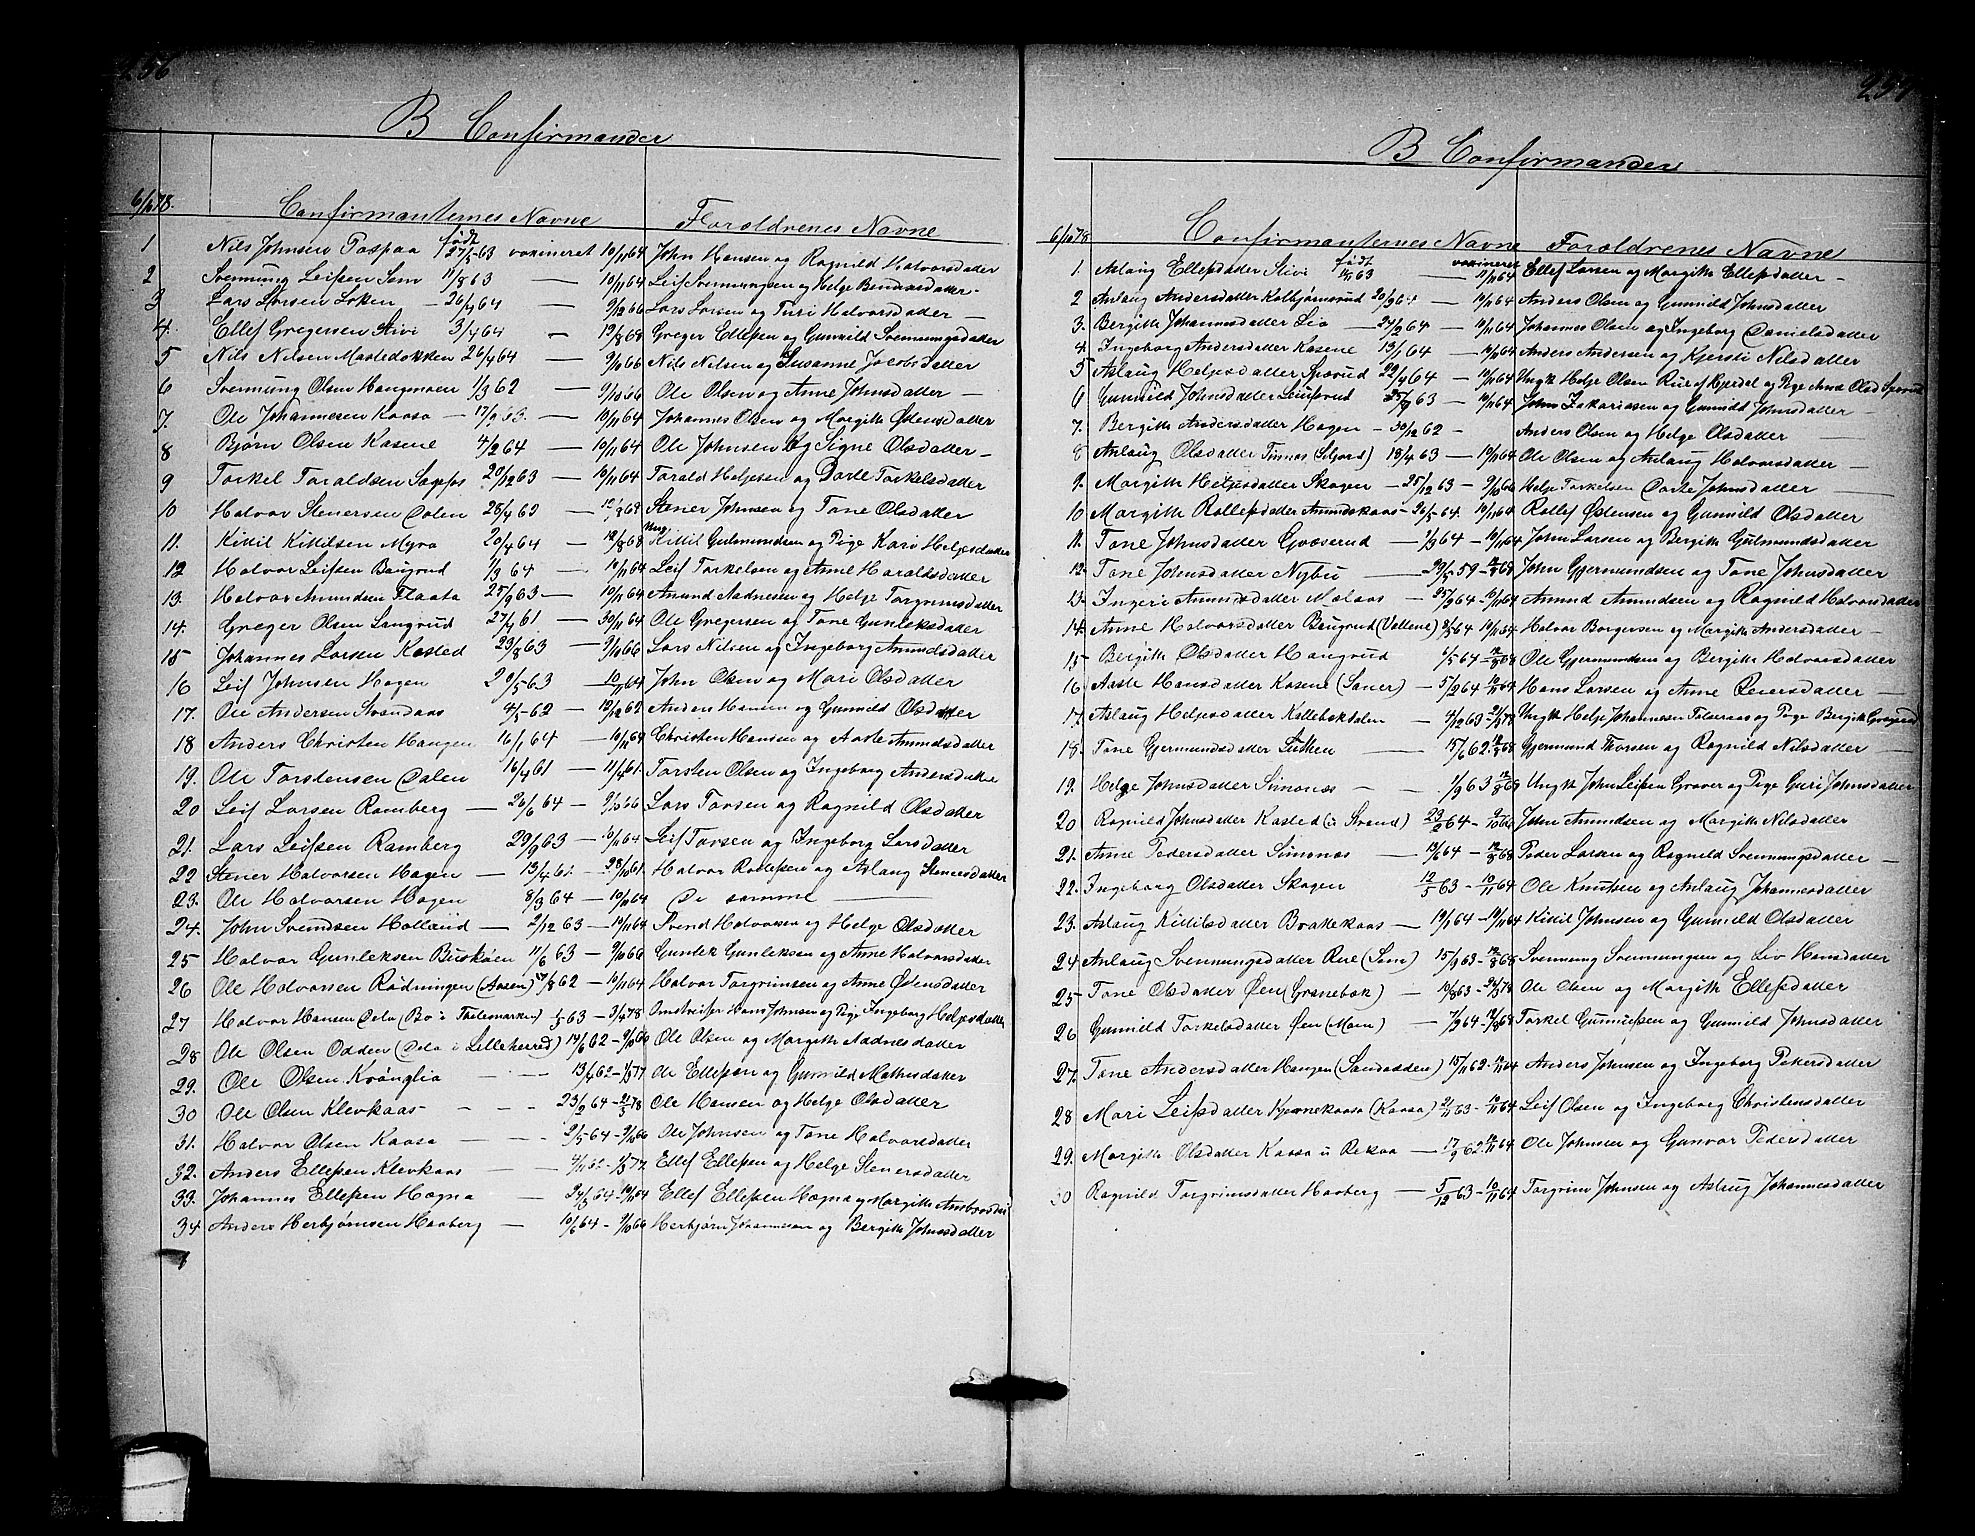 256
B Confirmander
6/10 78.
Confirmanternes Navne Forældrenes Navne
1 Nils Johnsen født 27/5 63 vaxineret 10/11 64 John Hansen og Ragnild Halvorsdatter
2 Svennung Leifsen Sem 11/8 63 — 10/11 64 Leif Svennungsen og Helge
3 Lars Larsen — 26/4 64 — 9/10 66 Lars Larsen og Turi Halvorsdatter —
4. Ellef Gregersen Stivi 3/4 64 — 12/8 68 Greger Ellefsen og Gunnild Svennungsdatter
5 Nils Nilsen Mastedokken 26/4 64 — 9/10 66 Nils Nilsen og Susanne Jacobsdatter
6 Svennung Olsen Haugmoen 1/3 62 — 9/10 66 Ole Olsen og Anne Johnsdatter —
7. Ole Johannesen Kaasa — 17/9 63. — 10/11 64 Johannes Olsen og Margith Østensdatter
8 Bjørn Olsen Kasene 4/2 64 — 10/11 64 Ole Johnsen og Signe Olsdatter —
9 Torkel Toraldsen Sagefos 20/12 63 — 10/11 64 Torald Heljesen og Dorte Torkelsdatter
10 Halvor Stenersen Dalen 28/4 63 — 12/8 68 Stener Johnsen og Tone Olsdatter
11. Kittil Kittilsen Myra 20/4 64 — 12/8 68 Ung. Kittil Gulmundsen og Pige Kari Heljesdatter
12 Halvor Leifsen Baugrud 1/3 64 — 10/11 64 Leif Torkelsen og Anne Haraldsdatter
13. Halvor Amundsen Flaata 25/9 63 — 10/11 64 Amund Aadnesen og Helge Torgrimsdatter
14. Greger Olsen Langrud 27/4 61 — 30/11 64 Ole Gregersen og Tone Gunleksdatter
15 Johannes Larsen Kasted 29/8 63 — 9/10 66 Lars Nilsen og Ingeborg Amundsdatter
16 Leif Johnsen Hagen 29/5 63 10/11 64 John Olsen og Mari Olsdatter
17. Ole Andersen Svandaas 4/5 62 — 12/12 62 Anders Hansen og Gunnild Olsdatter
18 Anders Christen Haugen 16/1 64 — 10/11 64 Christen Hansen og Aaste Amundsdatter
19. Ole Torstensen Dalen 16/4 61 — 11/4 61. Torsten Olsen og Ingeborg Andersdatter
20 Leif Larsen Ramberg — 26/6 64 — 9/10 66 Lars Torsen og Ragnild Olsdatter
21. Lars Leifsen Ramberg 29/9 63 — 10/11 64 Leif Torsen og Ingeborg Larsdatter
22 Stener Halvorsen Hagen — 13/4 61. — 28/10 61 Halvor Rollefsen og Aslaug Stenersdatter
23. Ole Halvorsen Hagen 8/3 64 — 10/11 64 De samme —
24. John Svendsen — 2/12 63 — 10/11 64 Svend Halvorsen og Helge Olsdatter
25 Halvor Gunleksen Buskåen 11/6 63 — 9/10 66 Gunlek Gunleksen og Anne Halvorsdatter
26 Ole Halvorsen Rödningen (Aasen) 27/8 62 — 10/11 64 Halvor Torgrimsen og Anne Østensdatter
27 Halvor Hansen Dela (Bø i Thelemarken) 1/3 63 — 3/4 78 Hans Johnsen og Pige Ingeborg Heljesdatter
28 Ole Olsen Odden (Dela i Lilleherred) 14/6 62 — 9/10 66 Ole Olsen og Margith Aadnesdatter
29. Ole Olsen Krånglia — — 13/4 62 — 1/3 77 Ole Ellefsen og Gunnild Mathisdatter
30 Ole Olsen Klevkaas — — 23/2 64 — 21/3 78 Ole Hansen og Helge Olsdatter
31. Halvor Olsen Kaasa — — 2/5 64 — 9/10 66 Ole Johnsen og Tone Halvorsdatter
32. Anders Ellefsen Klevkaas — 4/11 62 — 1/3 77 Ellef Ellefsen og Helge Stenersdatter
33. Johannes Ellefsen Hægna — 24/3 64 — 10/11 64 Ellef Ellefsen Hægna og Margith
34. Anders Herbjørnsen Haaberg — 10/6 64 — 9/10 66 Herbjørn Johannesen og Bergith Johnsdatter
257
B Confirmander
6/10 78 Confirmanternes Navne Forældrenes Navne
1. Aslaug Ellefsdatter Stivi født 63 — vaxineret 10/11 64 Ellef Larsen og Margith Ellefsdatter —
2 Anlaug Andersdatter Kolbjørnsrud 20/9 64 — 10/11 64 Anders Olsen og Gunnild Johnsdatter
3. Bergith Johannesdatter Lia — 24/2 64 — 10/11 64 Johannes Olsen og Ingeborg Danielsdatter
4. Ingeborg Andersdatter Kasene 13/1 64 — 10/11 64 Anders Andersen og Kjersti Nilsdatter
5 Aslaug Heljesdatter 22/4 64 — 10/11 64 Ungk Helje Olsen Rue af Hjerdal og Pige Anne Olsd
6 Gunnild Johnsdatter 25/9 63 — 10/11 64 John Zakariasen og Gunnild Johnsdatter —
7. Bergith Andersdatter Hagen — 30/12 62 — Anders Olsen og Helge Olsdatter —
8 Anlaug Olsdatter Tinnes (Seljord) 18/4 63 — 10/11 64 Ole Olsen og Anlaug Halvorsdatter —
9. Margith Heljesdatter Skogen — 25/12 63 — 9/10 66 Helje Torkelsen Dorte Johnsdatter —
10 Margith Rollefsdatter Amundskaas — 26/5 64. 10/11 64 Rollef Østensen og Gunnild Olsdatter
11. Tone Johnsdatter Gvaserud — 1/3 64 — 10/11 64 John Larsen og Bergith Gulmundsdatter
12. Tone Johnsdatter Nybu — 29/5 59 — 12/8 68 John Gjermundsen og Tone Johnsdatter
13. Ingeri Amundsdatter Mælaas — 25/2 64 — 10/11 64 Amund Amundsen og Ragnild Halvorsdatter
14. Anne Halvorsdatter Baugrud (Vallene) 2/5 64 10/11 64 Halvor Borgersen og Margith Andersdatter —
15 Bergith Olsdatter Haugrud 6/5 64 — 12/8 68 Ole Gjermundsen og Bergith Halvorsdatter
16 Aaste Hansdatter Kasene (Saner) — 5/9 64 — 10/11 64 Hans Larsen og Anne Reiersdatter —
17. Aslaug Heljesdatter Kallebokdalen — 4/12 63 — 21/3 78 Ungk Helje Johannesen og Pige Bergith
18. Tone Gjermundsdatter — 15/6 62. 12/8 68 Gjermund Thorsen og Ragnild Nilsdatter —
19. Helge Johnsdatter Simonæs — 1/9 63 12/8 68 Ungk John Leifsen Graver og Pige Guri Johnsdatter
20 Ragnild Johnsdatter Kasted (i Strand) 23/2 64 — 9/10 66 John Amundsen og Margith Nilsdatter
21. Anne Pedersdatter Simonæs — 13/6 64 — 12/8 68 Peder Larsen og Ragnild Svennungsdatter —
22. Ingeborg Olsdatter Skogen 12/5 63 — 10/11 64 Ole Knutsen og Anlaug Johannesdatter
23. Aslaug Kittilsdatter Brattekaas — 19/1 64 — 10/11 64 Kittil Johnsen og Gunnild Olsdatter
24 Anlaug Svennungsdatter Rue (Sem) 15/9 63 — 12/8 68 Svennung Svennungsen og Liv Hansdatter
25 Tone Olsdatter Øen (Granebek) — 10/8 63 — 24/3 78 Ole Olsen og Margith Ellefsdatter
26 Gunnild Torkelsdatter Øen (Moen) — 7/9 64 — 12/8 68 Torkel Gunnufsen og Gunnild Johnsdatter
27. Tone Andersdatter Haugen (Sandodden) 15/11 62. 10/11 64 Anders Johnsen og Ingeborg Petersdatter
28 Mari Leifsdatter Kjernekaasa (Kaasa) 2/11 63 — 10/11 64 Leif Olsen og Ingeborg Christensdatter
29. Margith Olsdatter Kaasa i Reksaa — 17/9 62 10/11 64 Ole Johnsen og Gunvor Pedersdatter
30 Ragnild Torgrimsdatter Haaberg — 5/12 63 — 10/11 64 Torgrim Johnsen og Aslaug Johannesdatter